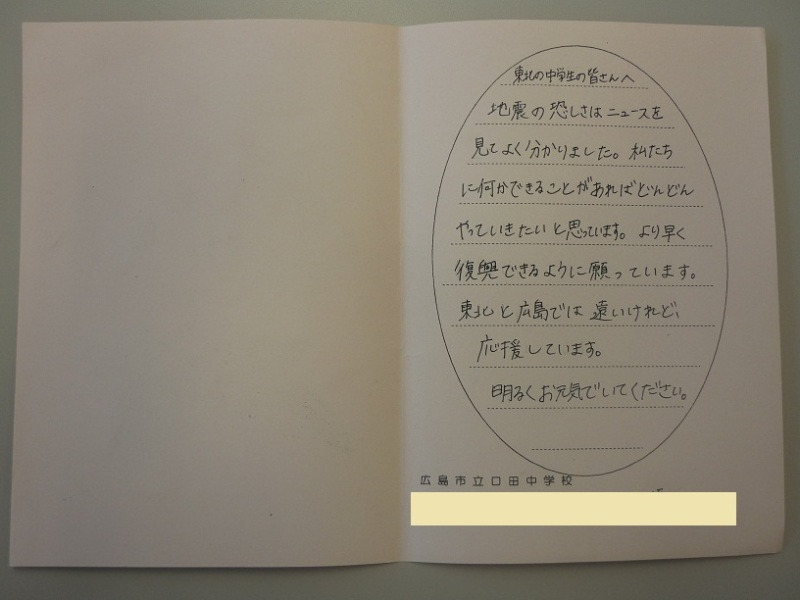 東北の中学生の皆さんへ
地震の恐しさはニュースを
見てよく分かりました。私たち
に何かできることがあればどんどん
やっていきたいと思っています。より早く
復興できるように願っています。
東北と広島では遠いけれど、
応援しています。
明るくお元気でいてください。
広島市立口田中学校